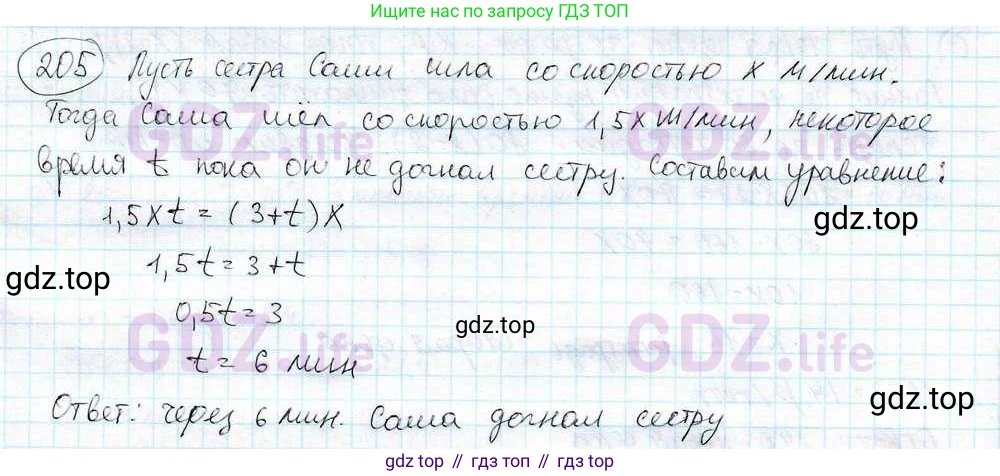 Ищите нас по запросу ГДЗ ТОП
205 Пусть сестра Саши шла со скоростью x м/мин.
Тогда Саша шёл со скоростью 1,5x м/мин, некоторое
время t пока он не догнал сестру. Составим уравнение:
1,5xt = (3+t)x
gdz.top
1,5t = 3+t
gdz.top
0,5t = 3
gdz.top
t = 6 мин
gdz.top
Ответ: через 6 мин. Саша догнал сестру
gdz.top // гдз топ // gdz.top
GDZ.life
GDZ.life
GDZ.life
GDZ.life